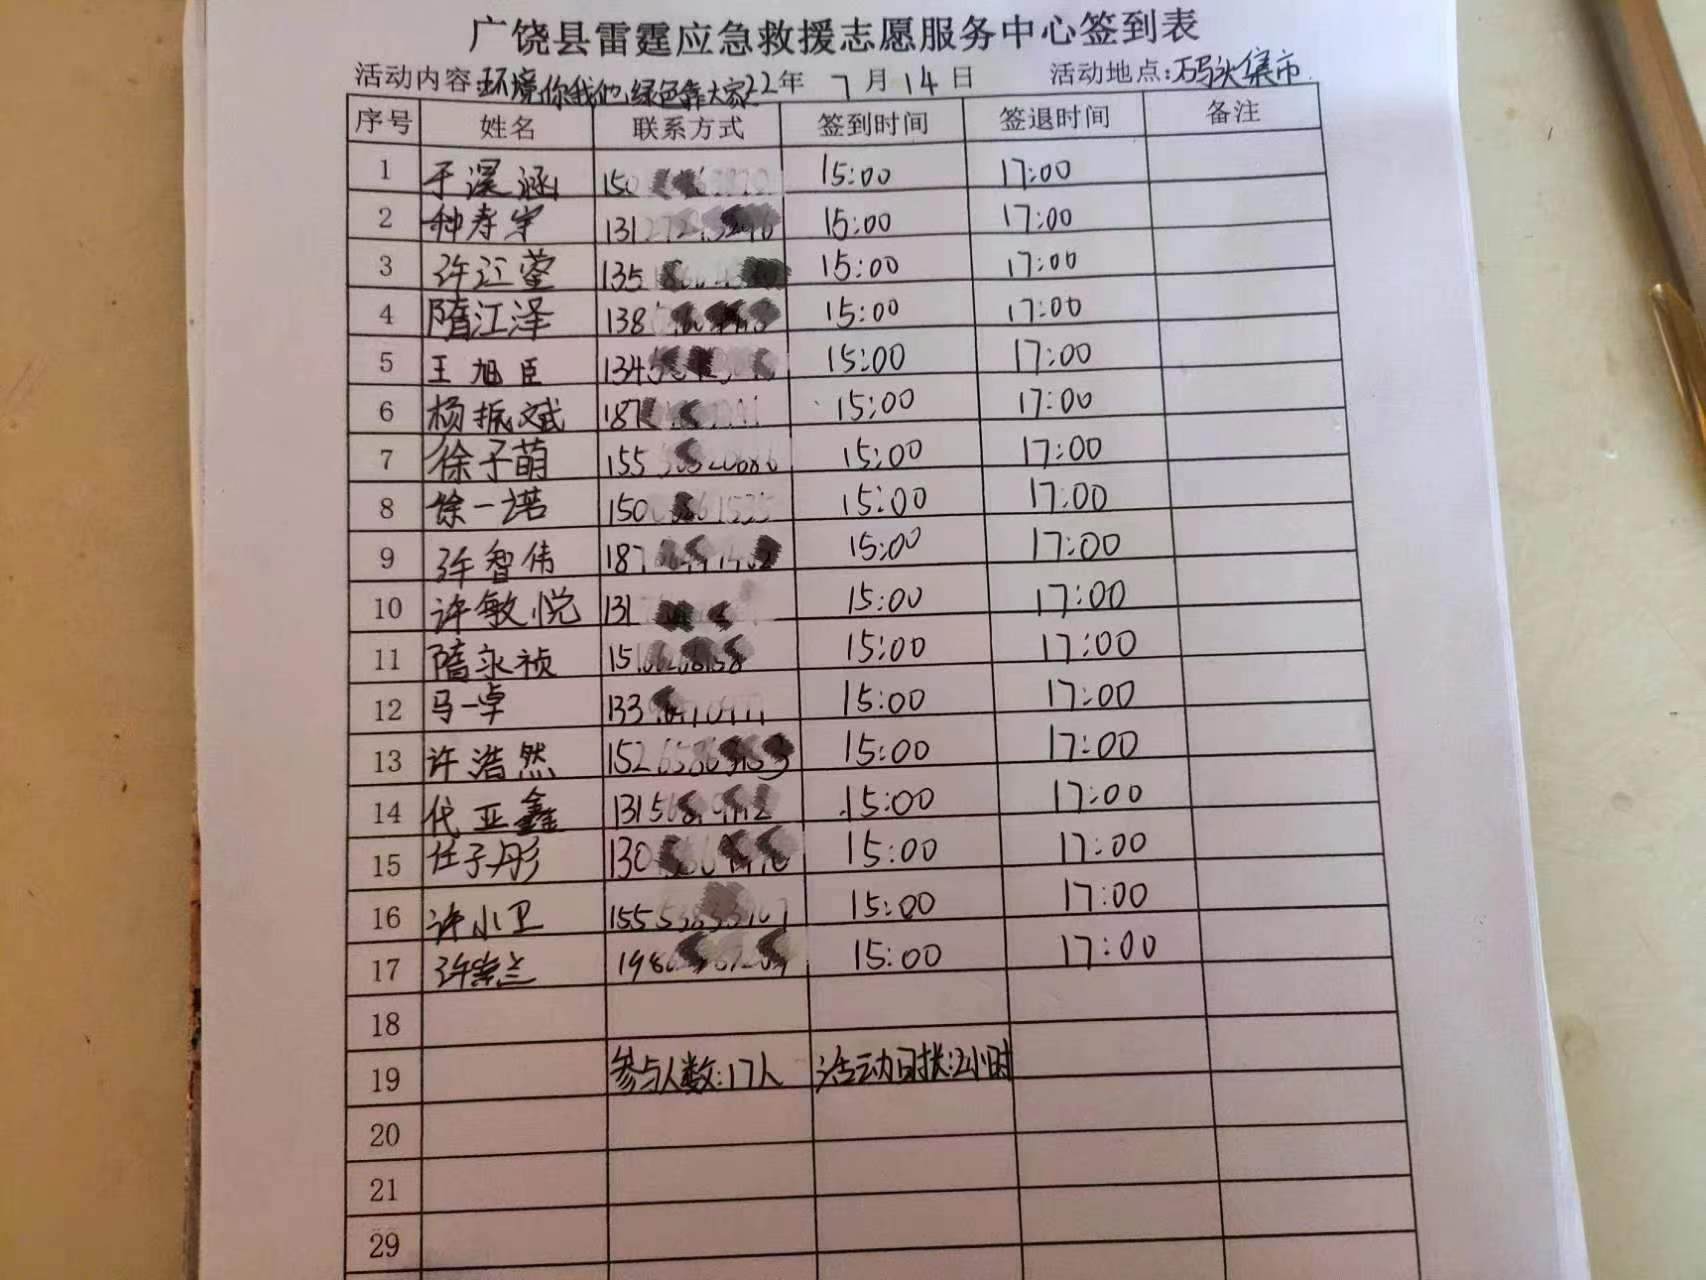 广饶县雷霆应急救援志愿服务中心签到表
活动内容:环境你我他,绿色靠大家22年 7月14日 活动地点:码头集市
序号 姓名 联系方式 签到时间 签退时间 备注
1 于淏涵 150 15:00 17:00
2 种孝宇 131 15:00 17:00
3 许江蓥 135 15:00 17:00
4 隋江泽 138 15:00 17:00
5 王旭臣 134 15:00 17:00
6 杨振斌 187 15:00 17:00
7 徐子萌 155 15:00 17:00
8 徐一诺 150 15:00 17:00
9 许智伟 187 15:00 17:00
10 许敏悦 131 15:00 17:00
11 隋永祯 15 15:00 17:00
12 马一卓 133 15:00 17:00
13 许浩然 152 15:00 17:00
14 代亚鑫 131 15:00 17:00
15 任子彤 130 15:00 17:00
16 许小卫 155 15:00 17:00
17 许崇兰 198 15:00 17:00
18
19 参与人数:17人 活动时长:2小时
20
21
29